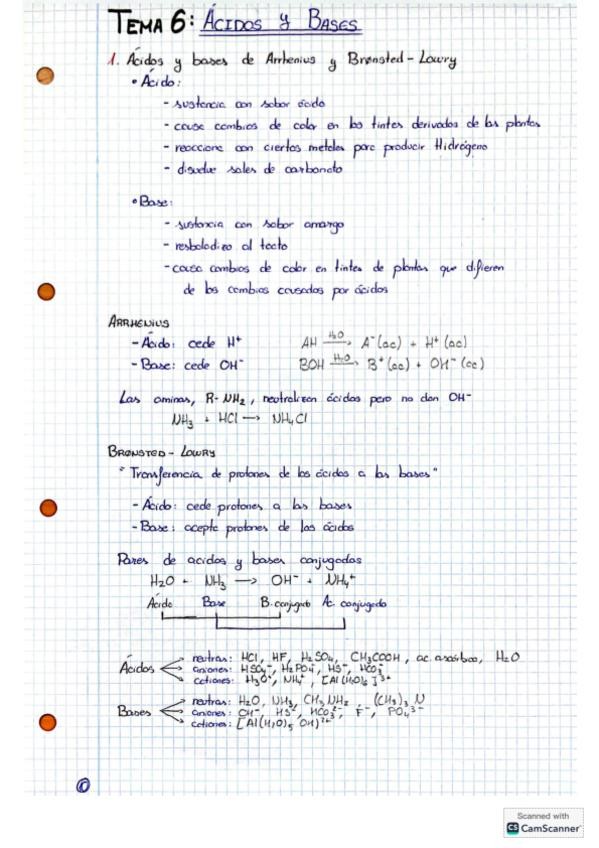 TEMA 6: ÁCIDOS Y BASES
1. Ácidos y bases de Arrhenius y Brønsted-Lowry
• Ácido:
- sustancia con sabor ácido
- causa cambios de color en los tintes derivados de las plantas
- reacciona con ciertos metales para producir Hidrógeno
- disuelve sales de carbonato
• Base:
- sustancia con sabor amargo
- resbaladizo al tacto
- causa cambios de color en tintes de plantas que difieren
de los cambios causados por ácidos
ARRHENIUS
- Ácido: cede H⁺ AH —H₂O→ A⁻(ac) + H⁺(ac)
- Base: cede OH⁻ BOH —H₂O→ B⁺(ac) + OH⁻(ac)
Las aminas, R-NH₂, neutralizan ácidos pero no dan OH⁻
NH₃ + HCl → NH₄Cl
BRØNSTED - LOWRY
"Transferencia de protones de los ácidos a las bases"
- Ácido: cede protones a las bases
- Base: acepta protones de los ácidos
Pares de acidos y bases conjugados
H₂O + NH₃ → OH⁻ + NH₄⁺
Ácido Base B. conjugada Ac. conjugado
Ácidos
neutras: HCl, HF, H₂SO₄, CH₃COOH, ac. ascórbico, H₂O
aniones: HSO₄⁻, H₂PO₄⁻, HS⁻, HCO₃⁻
cationes: H₃O⁺, NH₄⁺, [Al(H₂O)₆]³⁺
Bases
neutras: H₂O, NH₃, CH₃NH₂, (CH₃)₃N
aniones: OH⁻, HS⁻, HCO₃⁻, F⁻, PO₄³⁻
cationes: [Al(H₂O)₅OH]²⁺
Scanned with
CS CamScanner